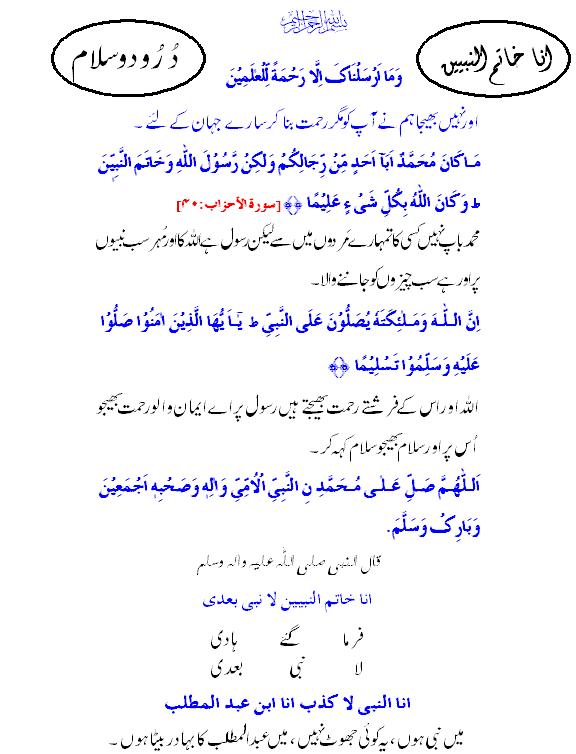 بسم الله الرحمن الرحيم
انا خاتم النبیین
دُرُود و سلام
وَمَا اَرْسَلْنٰکَ اِلَّا رَحْمَةً لِّلْعٰلَمِیْنَ
اور نہیں بھیجا ہم نے آپ کو مگر رحمت بنا کر سارے جہان کے لئے ۔
مَا کَانَ مُحَمَّدٌ اَبَآ اَحَدٍ مِّنْ رِّجَالِکُمْ وَلٰکِنْ رَّسُوْلَ اللّٰهِ وَخَاتَمَ النَّبِیّٖنَ
ط وَکَانَ اللّٰهُ بِکُلِّ شَیْءٍ عَلِیْمًا ﴿﴾ [سورة الأحزاب:۴۰]
محمد باپ نہیں کسی کا تمہارے مَردوں میں سے لیکن رسول ہے اللہ کا اور مُہر سب نبیوں
پر اور ہے سب چیزوں کو جاننے والا۔
اِنَّ اللّٰهَ وَمَلٰئِکَتَهٗ یُصَلُّوْنَ عَلَی النَّبِیِّ ط یٰٓاَیُّهَا الَّذِیْنَ اٰمَنُوْا صَلُّوْا
عَلَیْهِ وَسَلِّمُوْا تَسْلِیْمًا ﴿﴾
اللہ اور اس کے فرشتے رحمت بھیجتے ہیں رسول پر اے ایمان والو رحمت بھیجو
اُس پر اور سلام بھیجو سلام کہہ کر ۔
اَللّٰهُمَّ صَلِّ عَلٰی مُحَمَّدِ نِ النَّبِیِّ الْاُمِّیِّ وَاٰلِهٖ وَصَحْبِهٖ اَجْمَعِیْنَ
وَبَارِکْ وَسَلَّمَ.
قال النبی صلی اللّٰہ علیہ والہ وسلم
انا خاتم النبیین لا نبی بعدی
فرما گئے ہادی
لا نبی بعدی
انا النبی لا کذب انا ابن عبد المطلب
میں نبی ہوں، یہ کوئی جھوٹ نہیں، میں عبدالمطلب کا بہادر بیٹا ہوں ۔